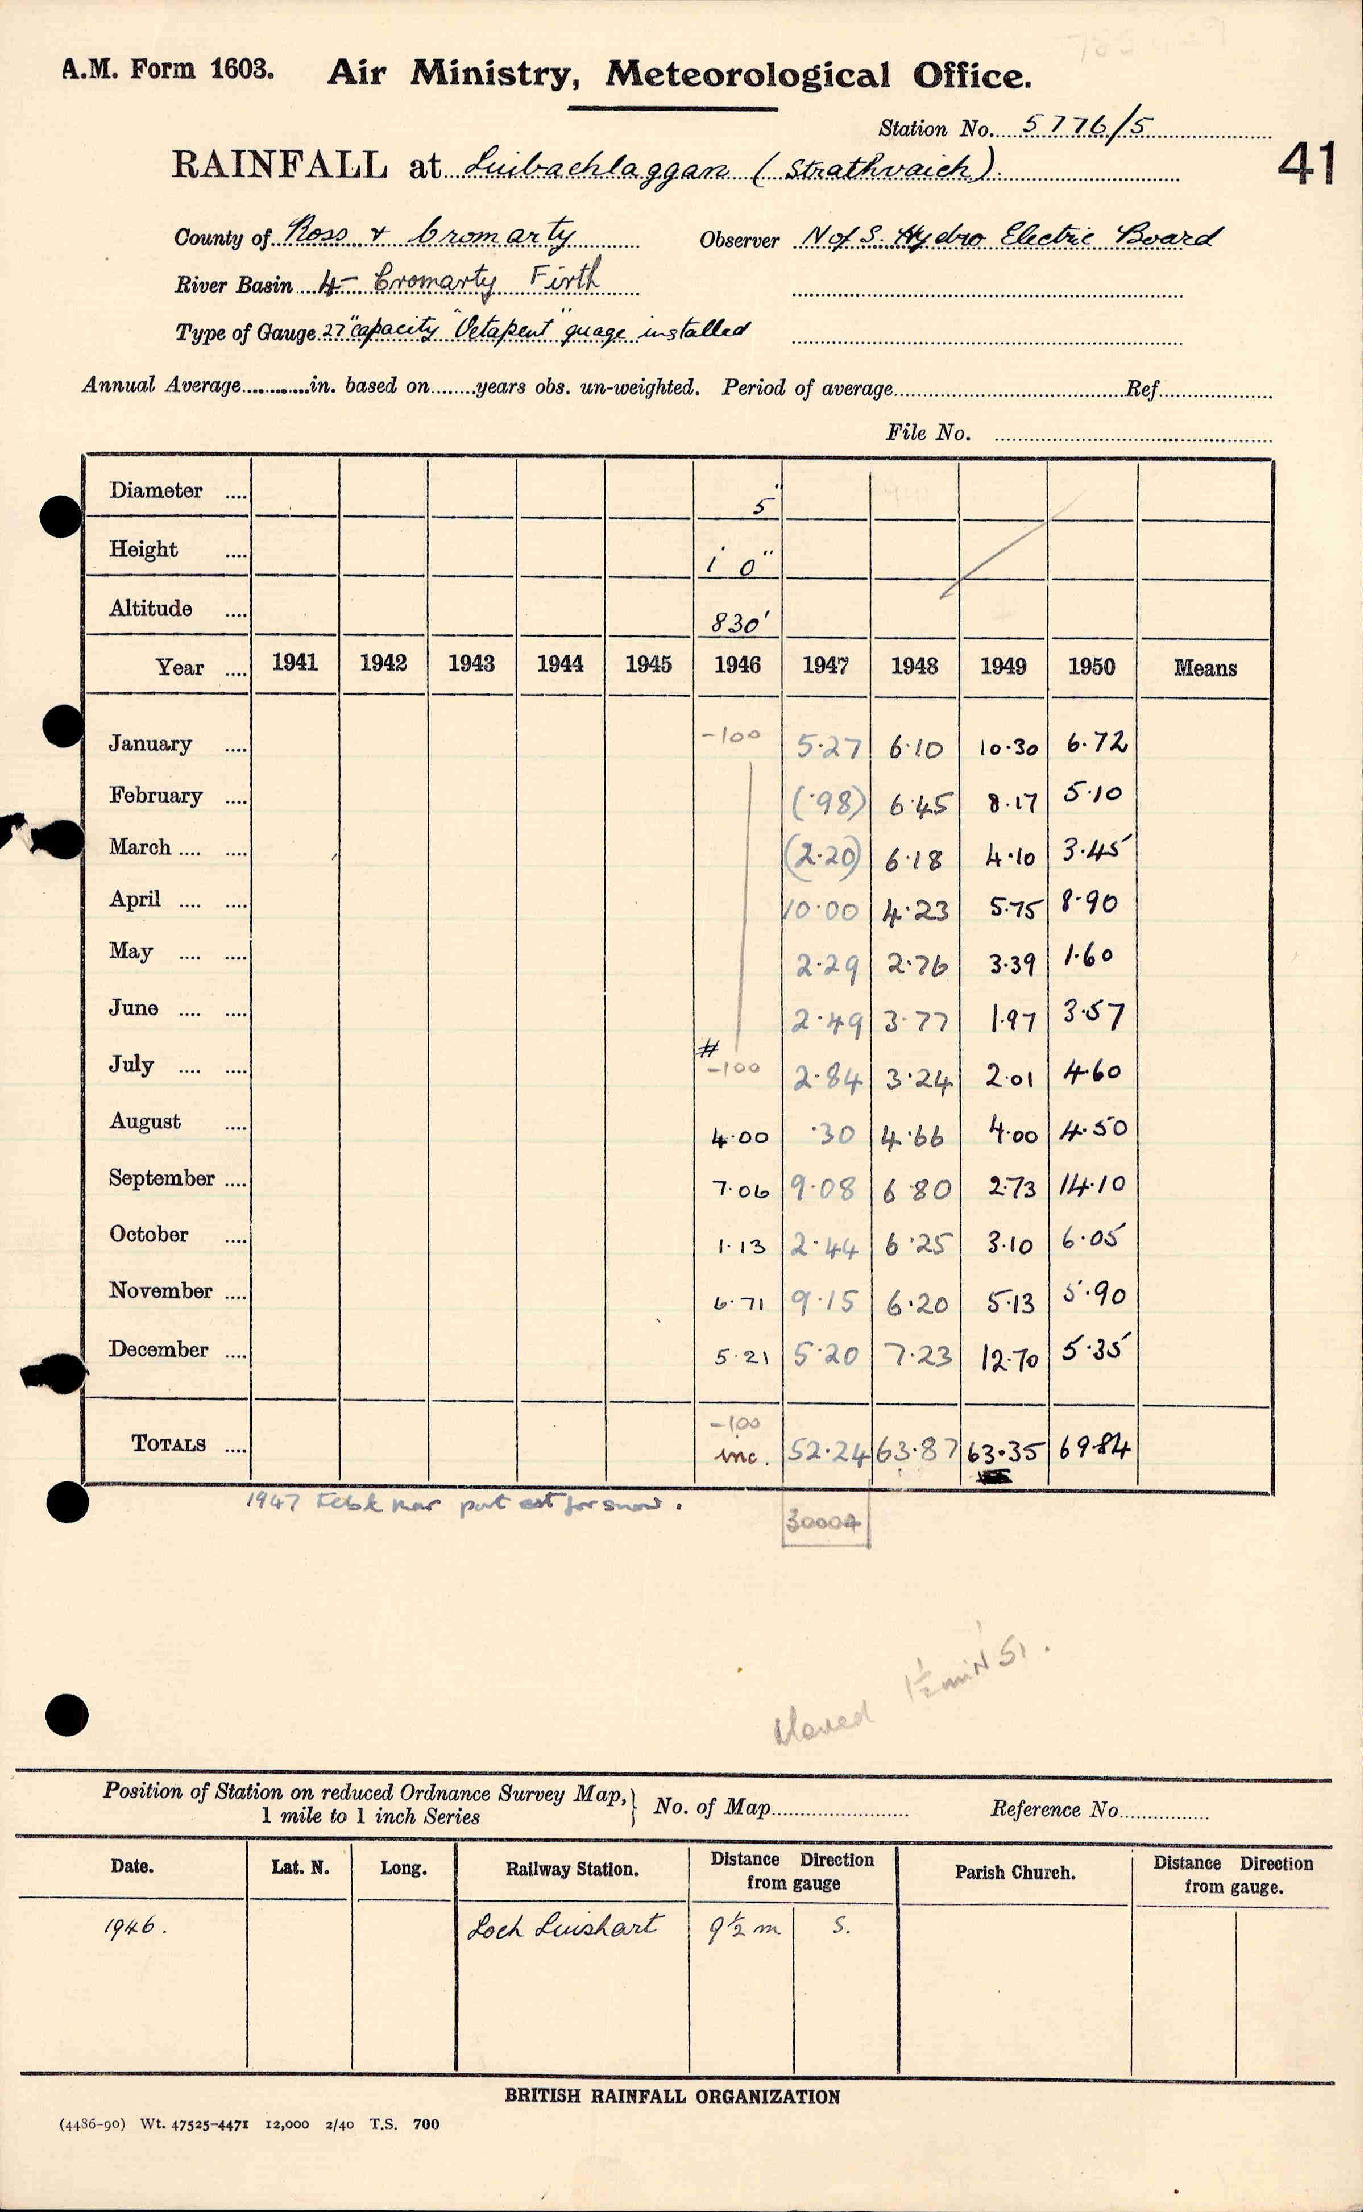 A.M. Form 1603. Air Ministry, Meteorological Office.
Station No. 5776/5
41
RAINFALL at Luibachlaggan (Strathvaich).
County of Ross & Cromarty Observer N of S. Hydro Electric Board
River Basin 4- Cromarty Firth
Type of Gauge 27" capacity "Octapent" guage installed
Annual Average............in. based on........years obs. un-weighted. Period of average....................Ref....................
File No. ....................
Diameter .... 5"
Height .... 1' 0"
Altitude .... 830'
Year .... 1941 1942 1943 1944 1945 1946 1947 1948 1949 1950 Means
January .... -100 5.27 6.10 10.30 6.72
February .... (.98) 6.45 8.17 5.10
March .... .... (2.20) 6.18 4.10 3.45
April .... .... 10.00 4.23 5.75 8.90
May .... .... 2.29 2.76 3.39 1.60
June .... .... 2.49 3.77 1.97 3.57
July .... .... # -100 2.84 3.24 2.01 4.60
August .... 4.00 .30 4.66 4.00 4.50
September .... 7.06 9.08 6.80 2.73 14.10
October .... 1.13 2.44 6.25 3.10 6.05
November .... 6.71 9.15 6.20 5.13 5.90
December .... 5.21 5.20 7.23 12.70 5.35
-100
TOTALS .... inc. 52.24 63.87 63.35 69.84
1947 Feb & Mar part est for snow.
30004
Moved 1½mi N '51.
Position of Station on reduced Ordnance Survey Map,} No. of Map.................... Reference No................
1 mile to 1 inch Series
Date. Lat. N. Long. Railway Station. Distance Direction from gauge Parish Church. Distance Direction from gauge.
1946. Loch Luishart 9½ m. S.
BRITISH RAINFALL ORGANIZATION
(4486-90) Wt. 47525-4471 12,000 2/40 T.S. 700